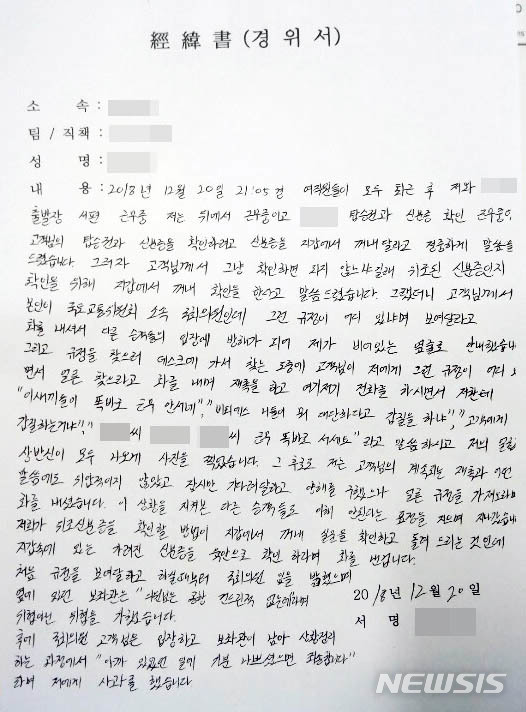 經緯書 (경위서)
소 속 :
팀 / 직책 :
성 명 :
내 용 : 2018년 12월 20일 21:05경 여직원들이 모두 퇴근 후 저와
출발장 서편 근무중 저는 뒤에서 근무중이고 탑승권과 신분증 확인 근무중,
고객님의 탑승권과 신분증을 확인하려고 신분증을 지갑에서 꺼내달라고 정중하게 말씀을
드렸습니다. 그러자 고객님께서 그냥 확인하면 되지 않느냐길래 위조된 신분증인지
확인을 위해 지갑에서 꺼내 확인을 한다고 말씀드렸습니다. 그랬더니 고객님께서
본인이 국토교통위원회 소속 국회의원인데 그런 규정이 어디 있냐며 보여달라고
화를 내셔서 다른 승객들의 입장에 방해가 되어 제가 비어있는 옆쪽으로 안내했습니
그리고 규정을 찾으러 데스크에 가서 찾는 도중에 고객님이 저에게 그런 규정이 어디
면서 얼른 찾으라고 화를 내며 재촉을 하고 여기저기 전화를 하시면서 저한테
"이새끼들이 똑바로 근무 안서네", "너희들이 뭐 대단하다고 갑질을 하냐", "고객에게
갑질하는거냐", " 씨 씨 근무 똑바로 서세요" 라고 말씀하시고 저의 얼굴
상반신이 모두 나오게 사진을 찍었습니다. 그 후로도 저는 고객님의 계속되는 재촉과
말씀에도 위압적이지 않았고 잠시만 기다려달라고 양해를 구했으나 얼른 규정을 가져오라며
화를 내셨습니다. 이 상황을 지켜본 다른 승객들도 이해 안된다는 표정을 지으며 지나갔습니
저희가 위조신분증을 확인할 방법이 지갑에서 꺼내 실물을 확인하고 돌려 드리는 것인데
지갑속에 있는 가려진 신분증을 육안으로 확인 하라며 화를 내셨니다.
처음 규정을 보여달라고 하실때부터 국회의원 임을 밝혔으며
옆에 있던 보좌관는 "의원님은 공항 건드린적 없는데"라며
위협아닌 위협을 가했습니다.
후에 국회의원 고객님은 입장하고 보좌관이 남아 상황정리
하는 과정에서 "아까 있었던 일에 기분 나쁘셨으면 죄송합니다"
라며 저에게 사과를 했습니다
2018년 12월 20일
서 명
NEWSIS